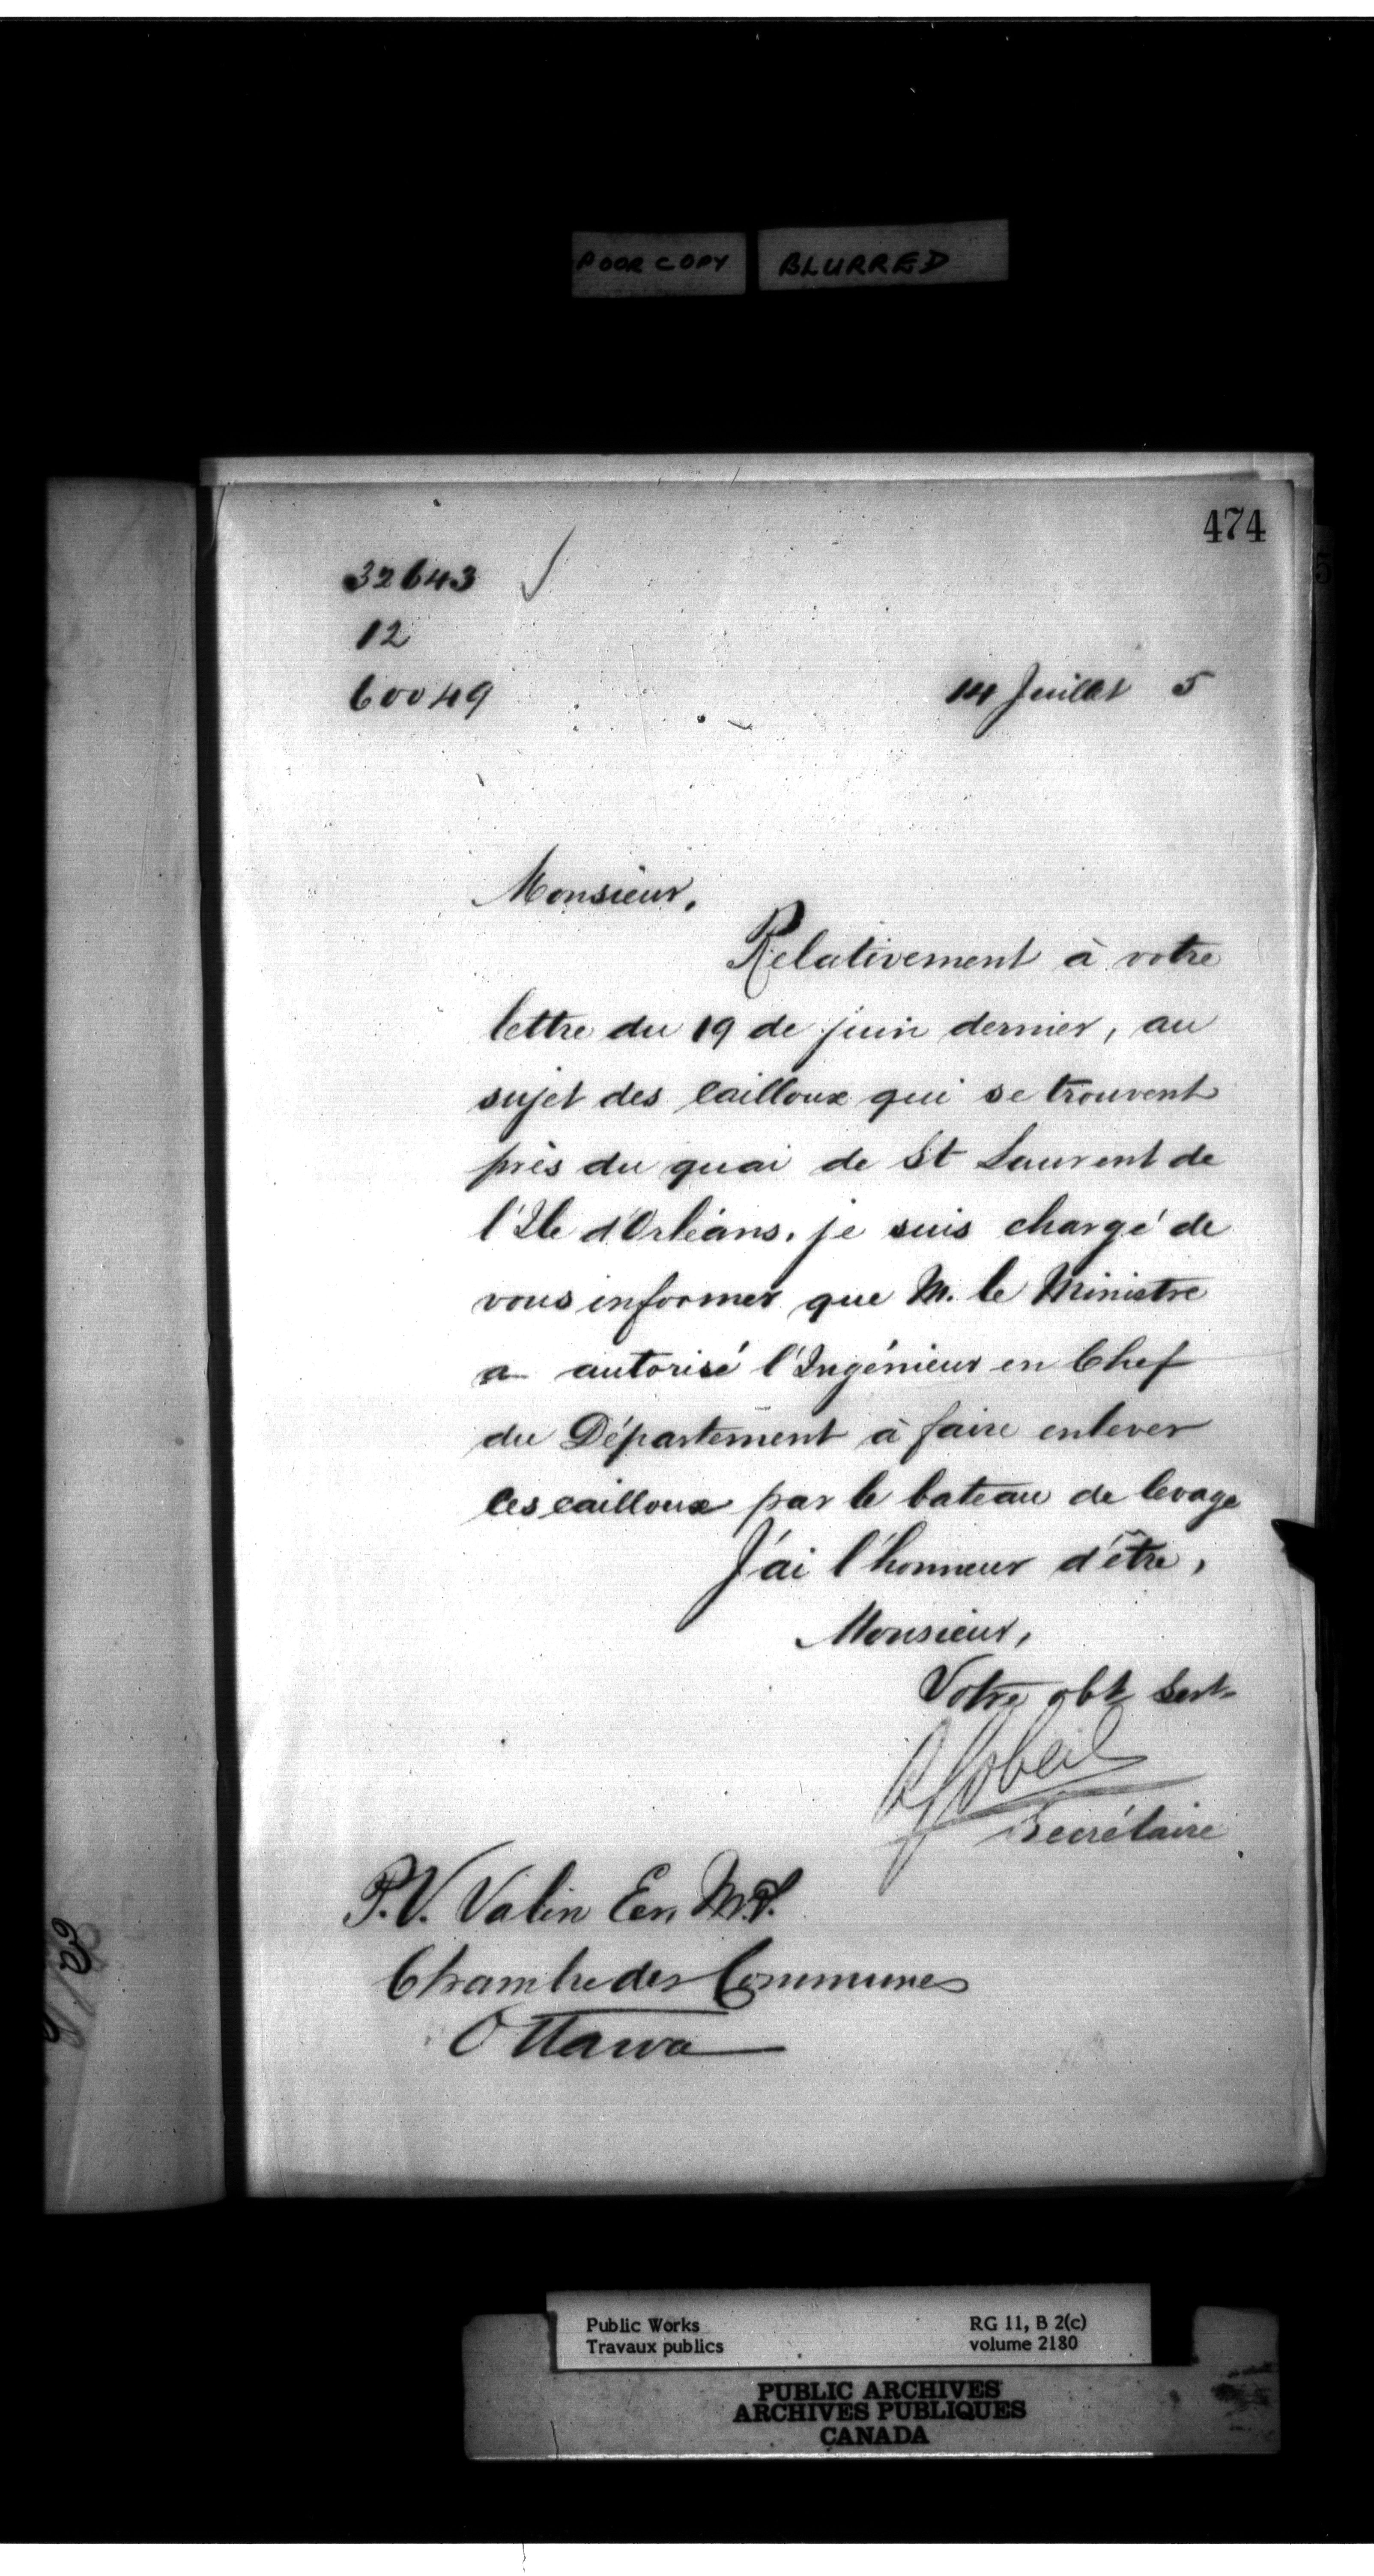 POOR COPY BLURRED
474
32643 ✓
12
60049
14 Juillet 5
Monsieur,
Relativement à votre
lettre du 19 de juin dernier, au
sujet des cailloux qui se trouvent
près du quai de St Laurent de
l'Ile d'Orléans, je suis chargé de
vous informer que M. le Ministre
a autorisé l'Ingénieur en Chef
du Département à faire enlever
ces cailloux par le bateau de levage
J'ai l'honneur d'être,
Monsieur,
Votre obt Sert
A Gobeil
Secrétaire
P.V. Valin Ecr, M.P.
Chambre des Communes
Ottawa
Public Works
Travaux publics
RG 11, B 2(c)
volume 2180
PUBLIC ARCHIVES
ARCHIVES PUBLIQUES
CANADA